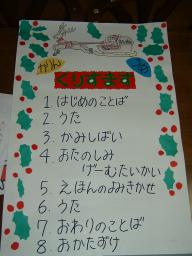 かりん
くりすます
1 はじめのことば
2. うた
3. かみしばい
4 おたのしみ
げーむたいかい
5 えほんのよみきかせ
6. うた
7. おわりのことば
8 おかたづけ